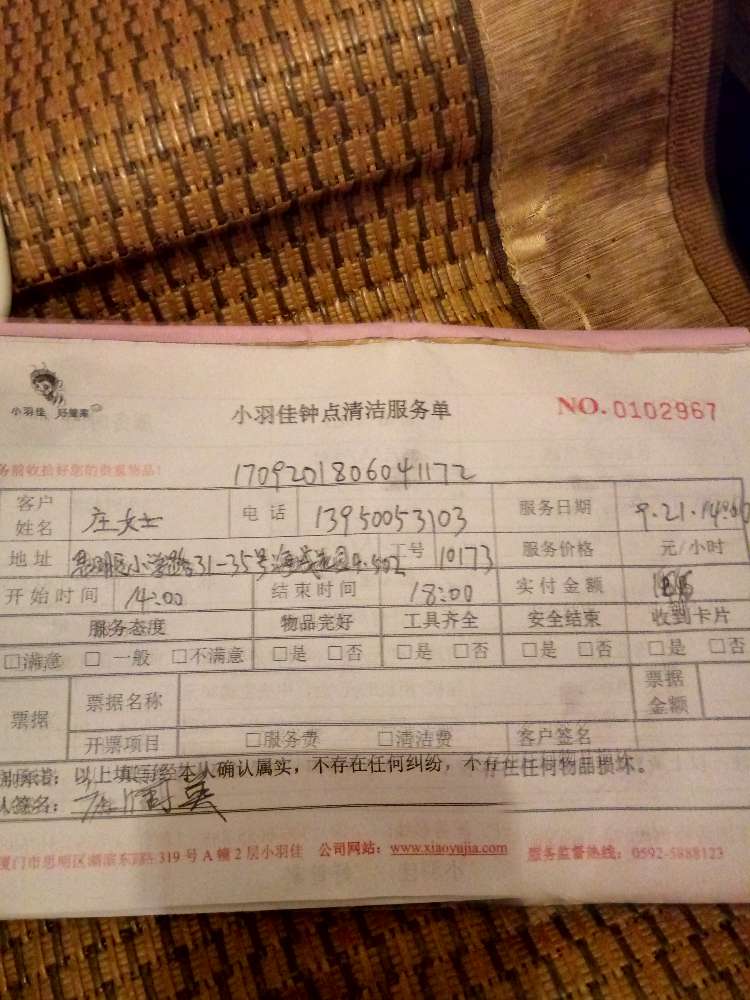 小羽佳 好管家
小羽佳钟点清洁服务单
NO. 0102967
务前收拾好您的贵重物品!
1709201806041172
客户姓名 庄女士 电话 13950053103 服务日期 9.21.14:00
地址 思明区小学路31-35号海滨花园 502 工号 10173 服务价格 元/小时
开始时间 14:00 结束时间 18:00 实付金额
服务态度 物品完好 工具齐全 安全结束 收到卡片
□满意 □一般 □不满意 □是 □否 □是 □否 □是 □否 □是 □否
票据 票据名称 票据金额
开票项目 □服务费 □清洁费 客户签名
以上填写经本人确认属实,不存在任何纠纷,不存在任何物品损坏。
人签名:
厦门市思明区湖滨东路319号A幢2层小羽佳 公司网站:www.xiaoyujia.com 服务监督热线:0592-5888123